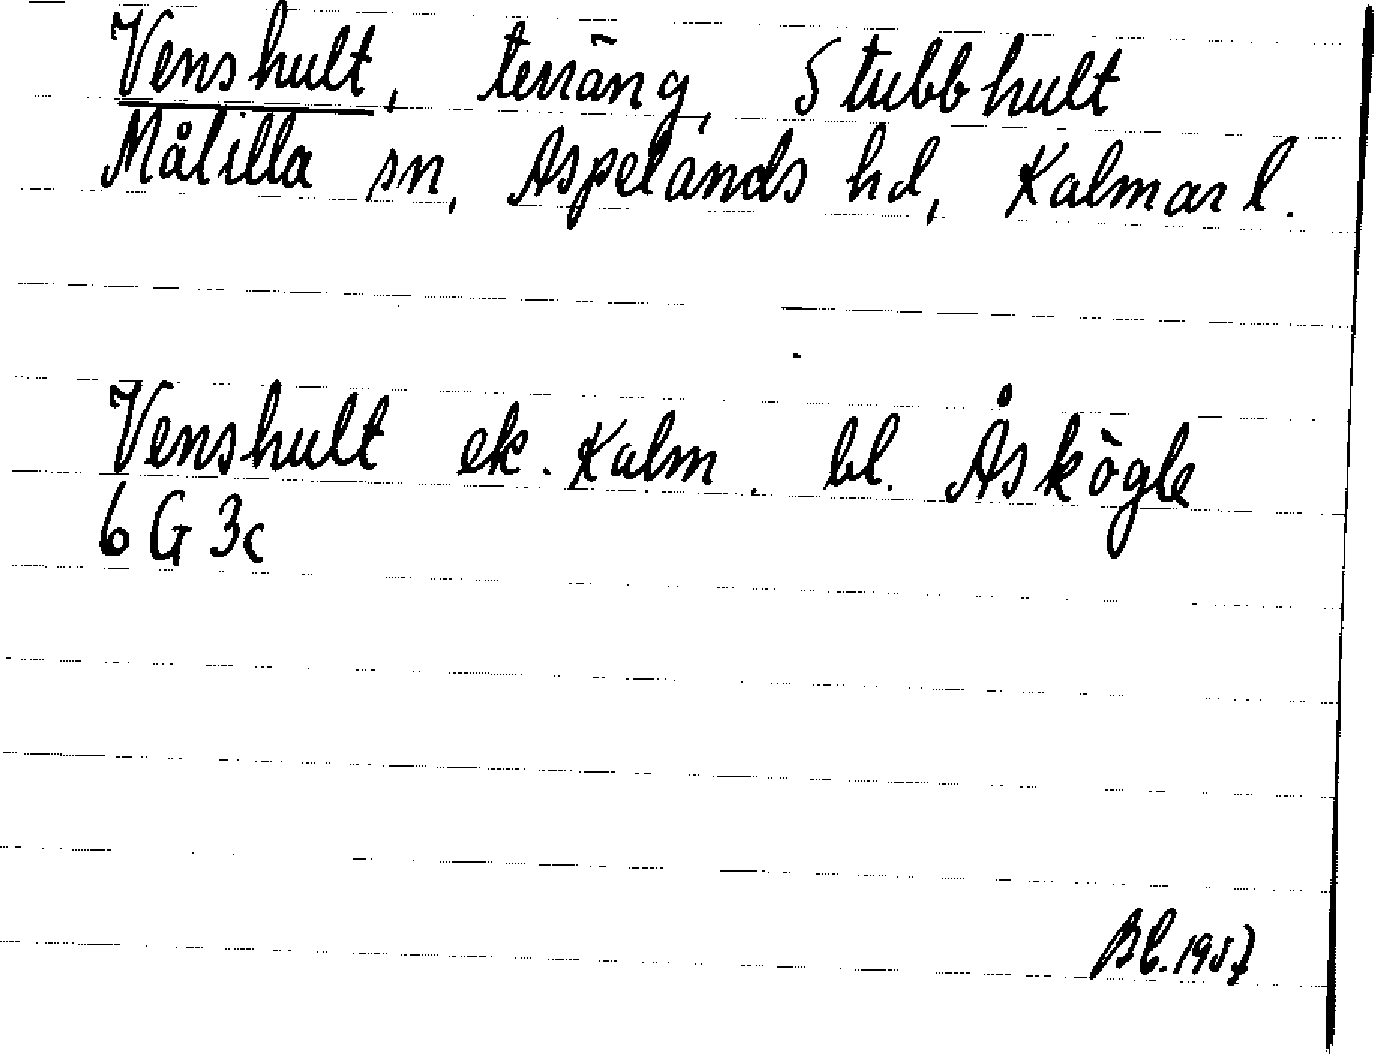 Venshult, terräng, Stubbhult
Målilla sn, Aspelands hd, Kalmar l.
Venshult ek. Kalm. bl. Åskögle
6 G 3c
Bb. 1957